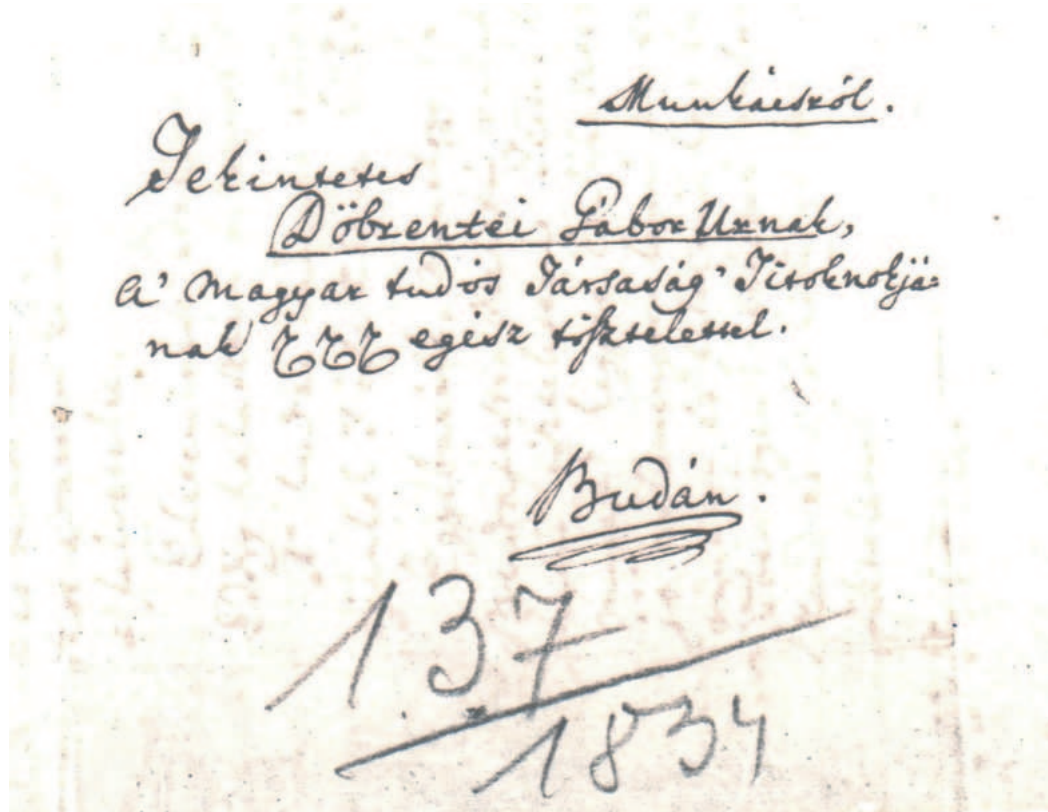 Munkácsról.
Tekintetes
Döbrentei Gábor Urnak,
a' Magyar tudós Társaság' Titoknokjá=
nak TTT egész tisztelettel.
Budán.
137
1834